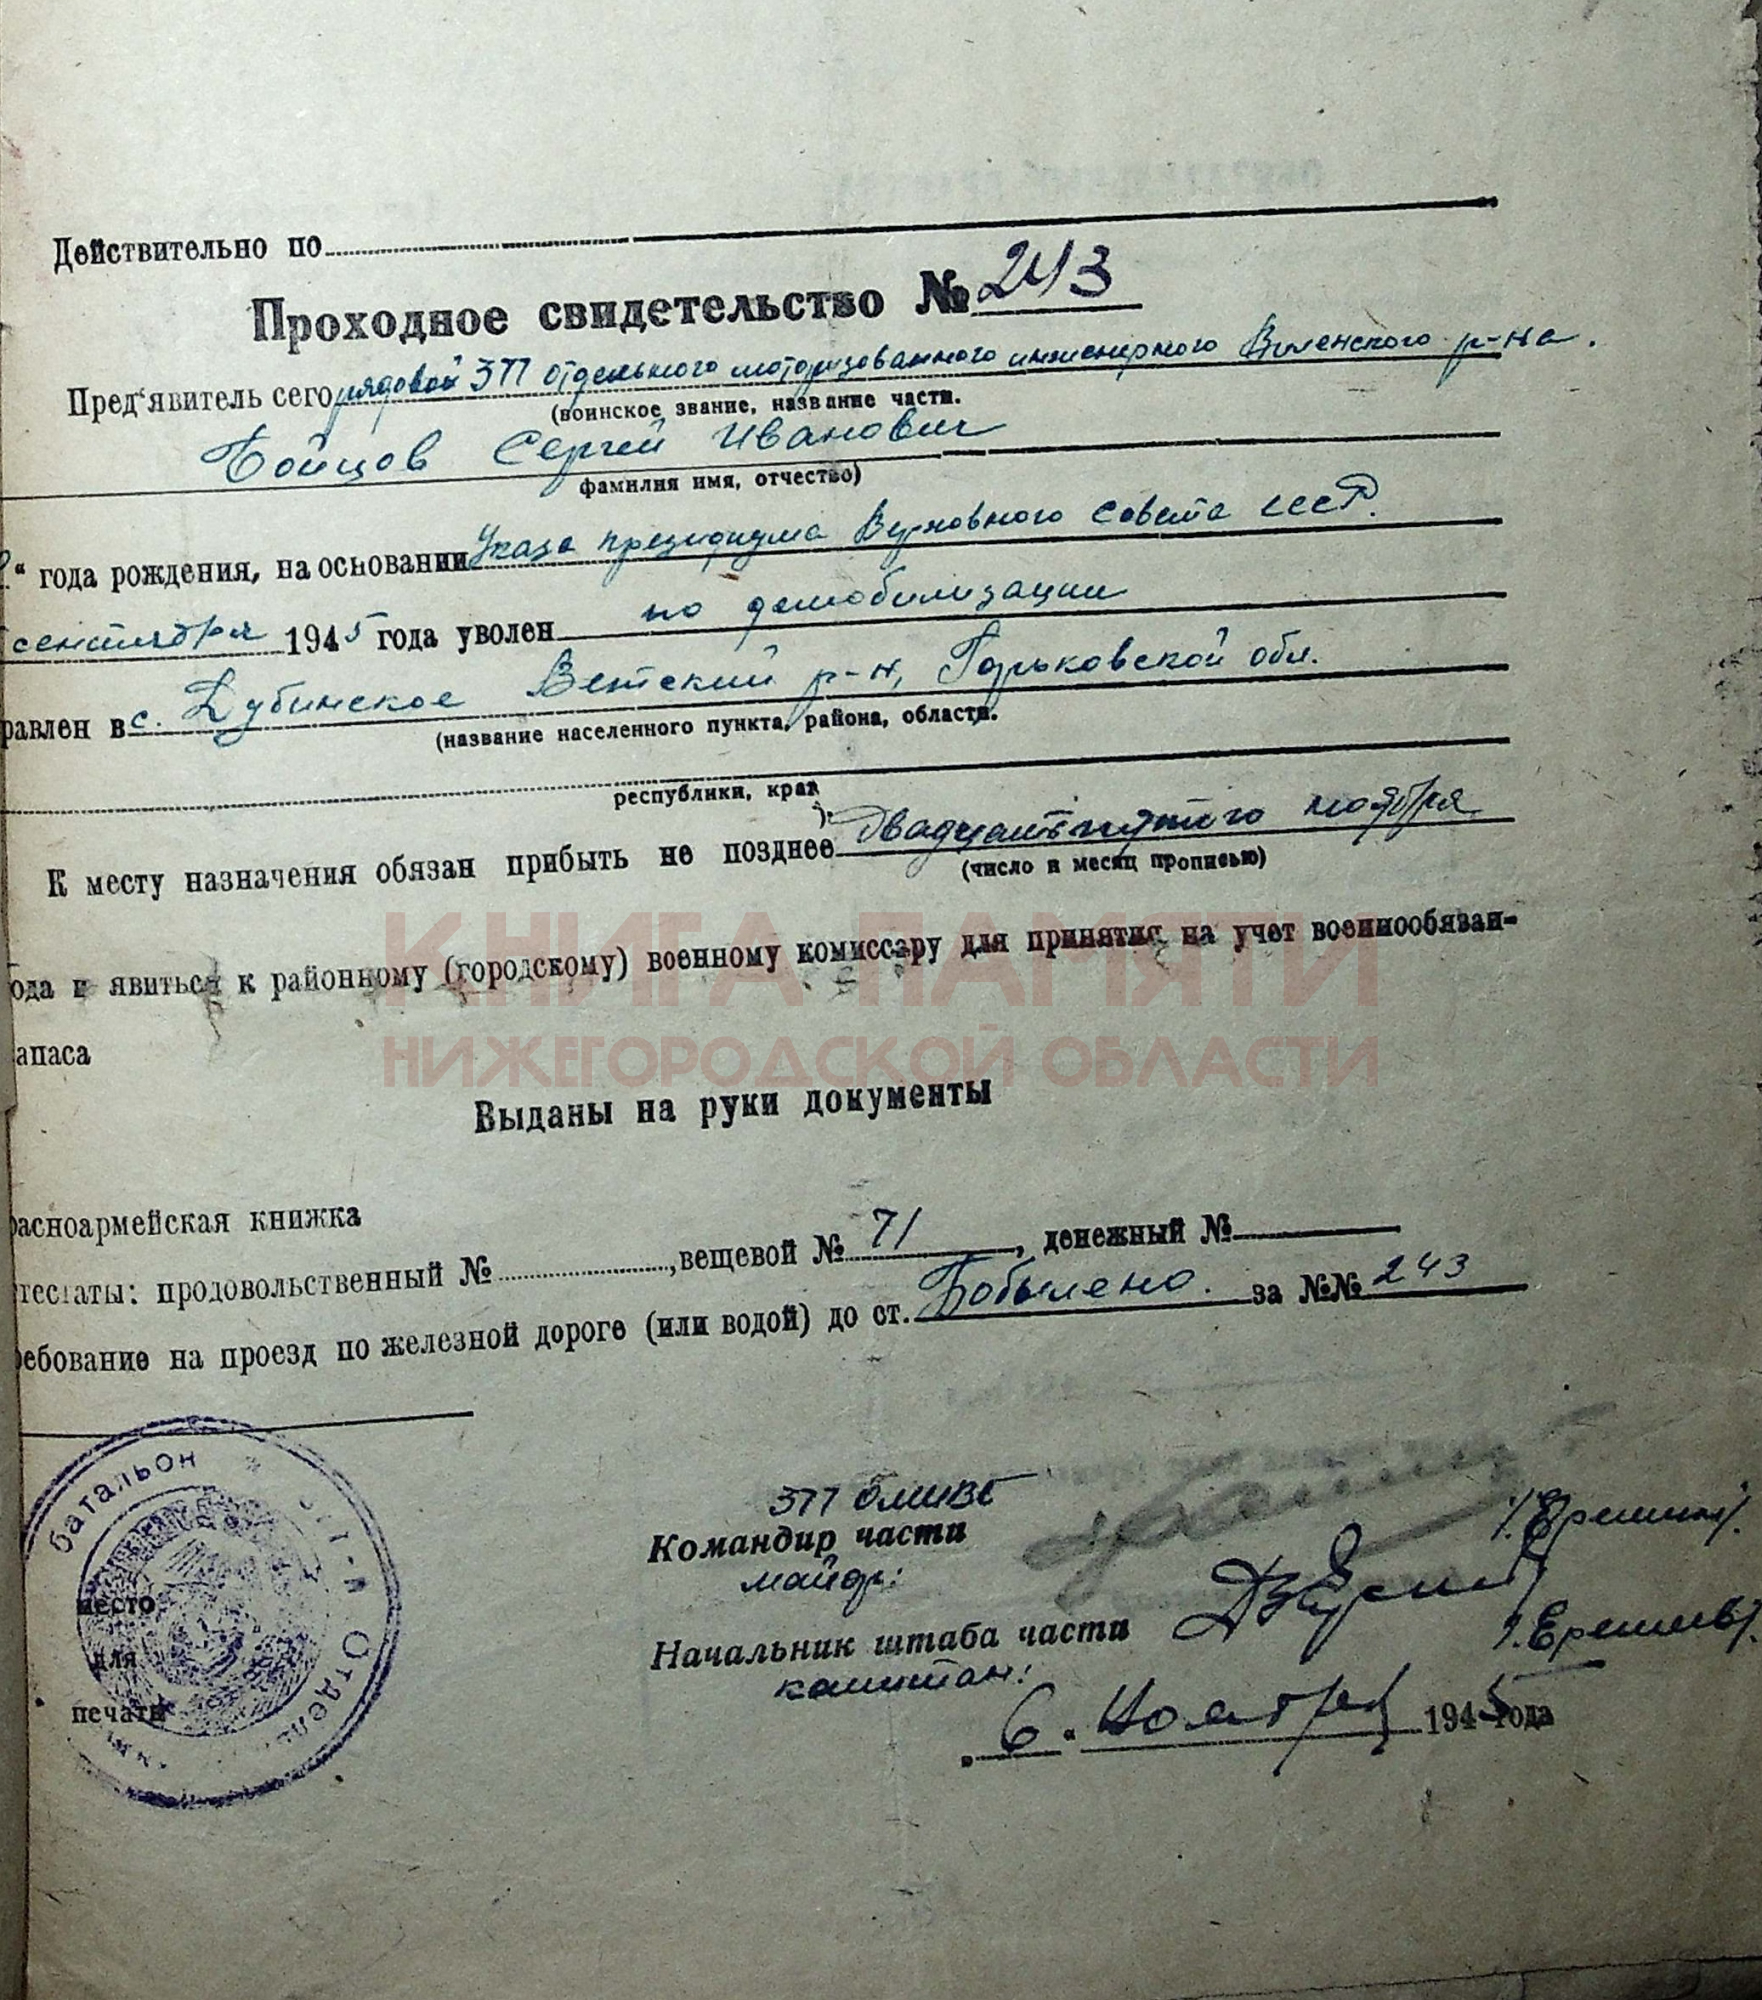 Действительно по
Проходное свидетельство № 243
Пред‘явитель сего рядовой 377 отдельного моторизованного инженерного р-на.
(воинское звание, название части.
Бойцов Сергей Иванович
фамилия имя, отчество)
“ года рождения, на основании Указа президиума Верховного Совета СССР.
сентября 1945 года уволен по демобилизации
равлен в с. Дубинское Ветский р-н, Горьковской обл.
(название населенного пункта, района, области.
республики, края
К месту назначения обязан прибыть не позднее двадцать пятого ноября
(число и месяц прописью)
ода и явиться к районному (городскому) военному комиссару для принятия на учет военнообязан-
апаса
КНИГА ПАМЯТИ
НИЖЕГОРОДСКОЙ ОБЛАСТИ
Выданы на руки документы
расноармейская книжка
тестаты: продовольственный № , вещевой № 71 , денежный №
ребование на проезд по железной дороге (или водой) до ст. Бобылено. за №№ 243
377
Командир части
майор:
Начальник штаба части
капитан:
„ 6 “ Ноября 1945 года
батальон
Отдель
место
для
печати